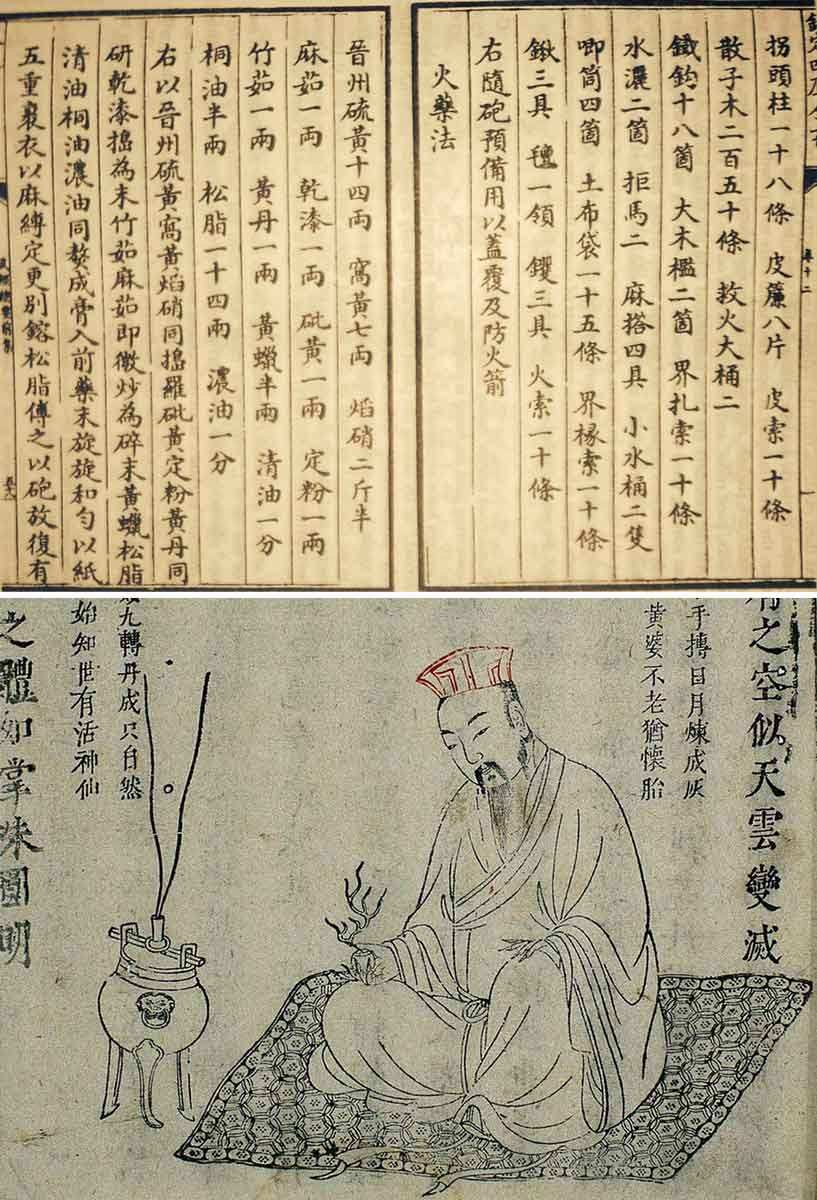 卷十二
拐頭柱一十八條 皮簾八片 皮索一十條
散子木二百五十條 救火大桶二
鐵鈎十八箇 大木檻二箇 界扎索一十條
水濃二箇 拒馬二 麻搭四具 小水桶二隻
唧筒四箇 土布袋一十五條 界椽索一十條
鍬三具 氊一領 钁三具 火索一十條
右隨砲預備用以蓋覆及防火箭
火藥法
晉州硫黃十四兩 窩黃七兩 焰硝二斤半
麻茹一兩 乾漆一兩 砒黃一兩 定粉一兩
竹茹一兩 黃丹一兩 黃蠟半兩 清油一分
桐油半兩 松脂一十四兩 濃油一分
右以晉州硫黃窩黃焰硝同搗羅砒黃定粉黃丹同
研乾漆搗為末竹茹麻茹即微炒為碎末黃蠟松脂
清油桐油濃油同熬成膏入前藥末旋旋和勻以紙
五重裹衣以麻縛定更別鎔松脂傅之以砲放復有
之空似天雲變滅
手摶日月煉成灰
黃婆不老猶懷胎
九轉丹成只自然
始知世有活神仙
之體如掌珠圓明